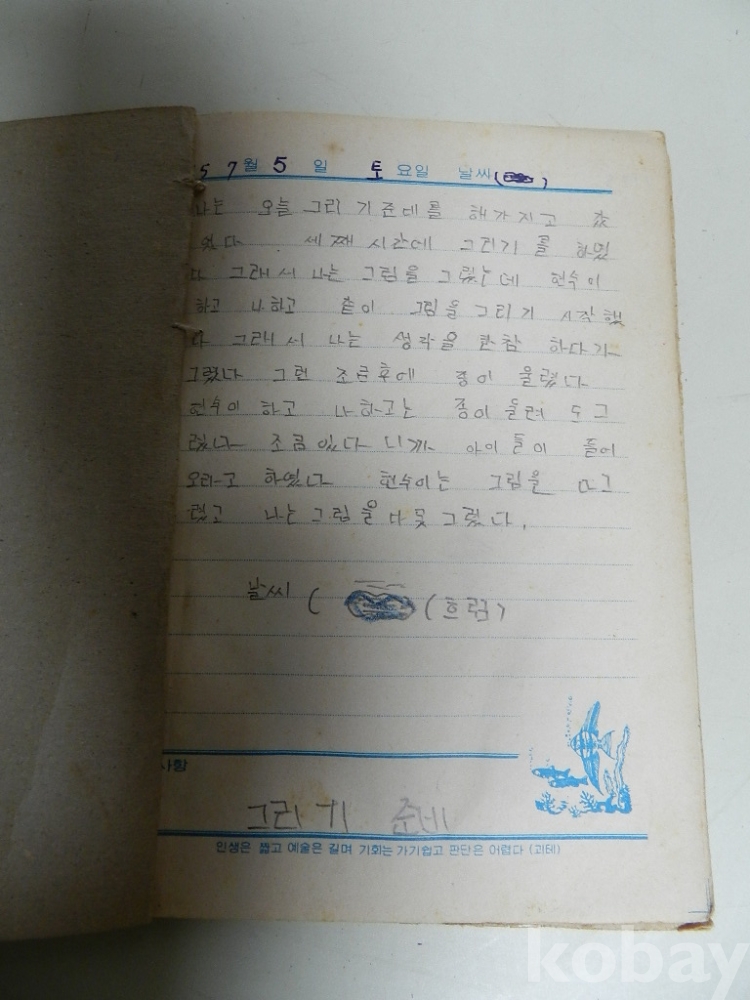 5 7월 5일 토요일 날씨( )
나는 오늘 그리기 준비를 해가지고 갔
었다. 세째 시간에 그리기를 하였
다 그래서 나는 그림을 그렸는데 현수이
하고 나하고 같이 그림을 그리기 시작했
다 그래서 나는 생각을 한참 하다가
그렸다 그런 조금후에 종이 울렸다
현수이 하고 나하고는 종이 울려 도 그
렸다 조금 있다 니까 아이들이 들어
오라고 하였다 현수이는 그림을 다그
렸고 나는 그림을 다 못 그렸다.
날씨 ( (흐림)
사항
그리기 준비
인생은 짧고 예술은 길며 기회는 가기쉽고 판단은 어렵다 (괴테)
kobay